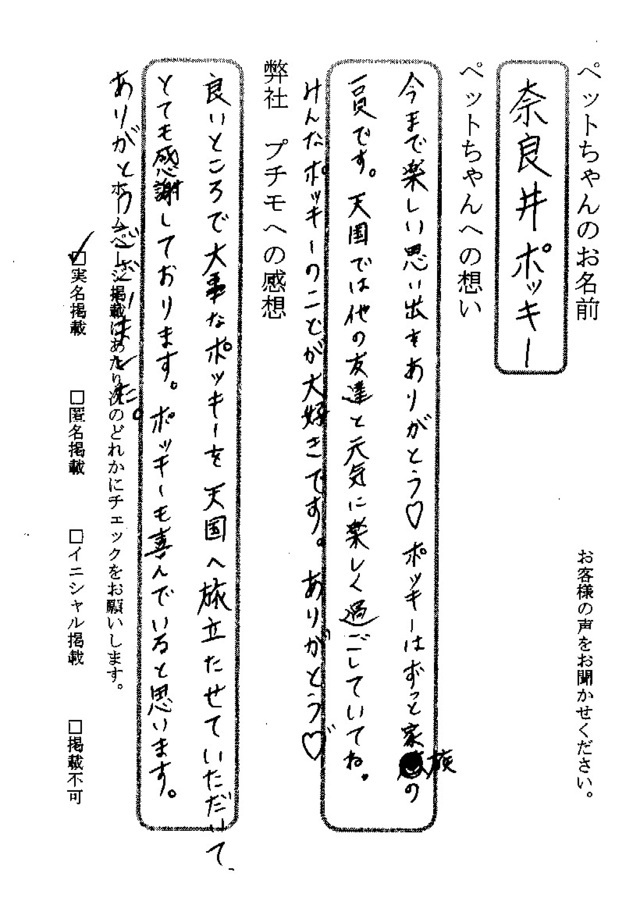 お客様の声をお聞かせください。
ペットちゃんのお名前
奈良井ポッキー
ペットちゃんへの想い
今まで楽しい思い出をありがとう♡ポッキーはずっと家族の
一員です。天国では他の友達と元気に楽しく過ごしていてね。
みんなポッキーのことが大好きです。ありがとう♡
弊社 プチモへの感想
良いところで大事なポッキーを天国へ旅立たせていただけて、
とても感謝しております。ポッキーも喜んでいると思います。
ありがとうございました。
ホームページ掲載にあたり次のどれかにチェックをお願いします。
☑実名掲載 □匿名掲載 □イニシャル掲載 □掲載不可